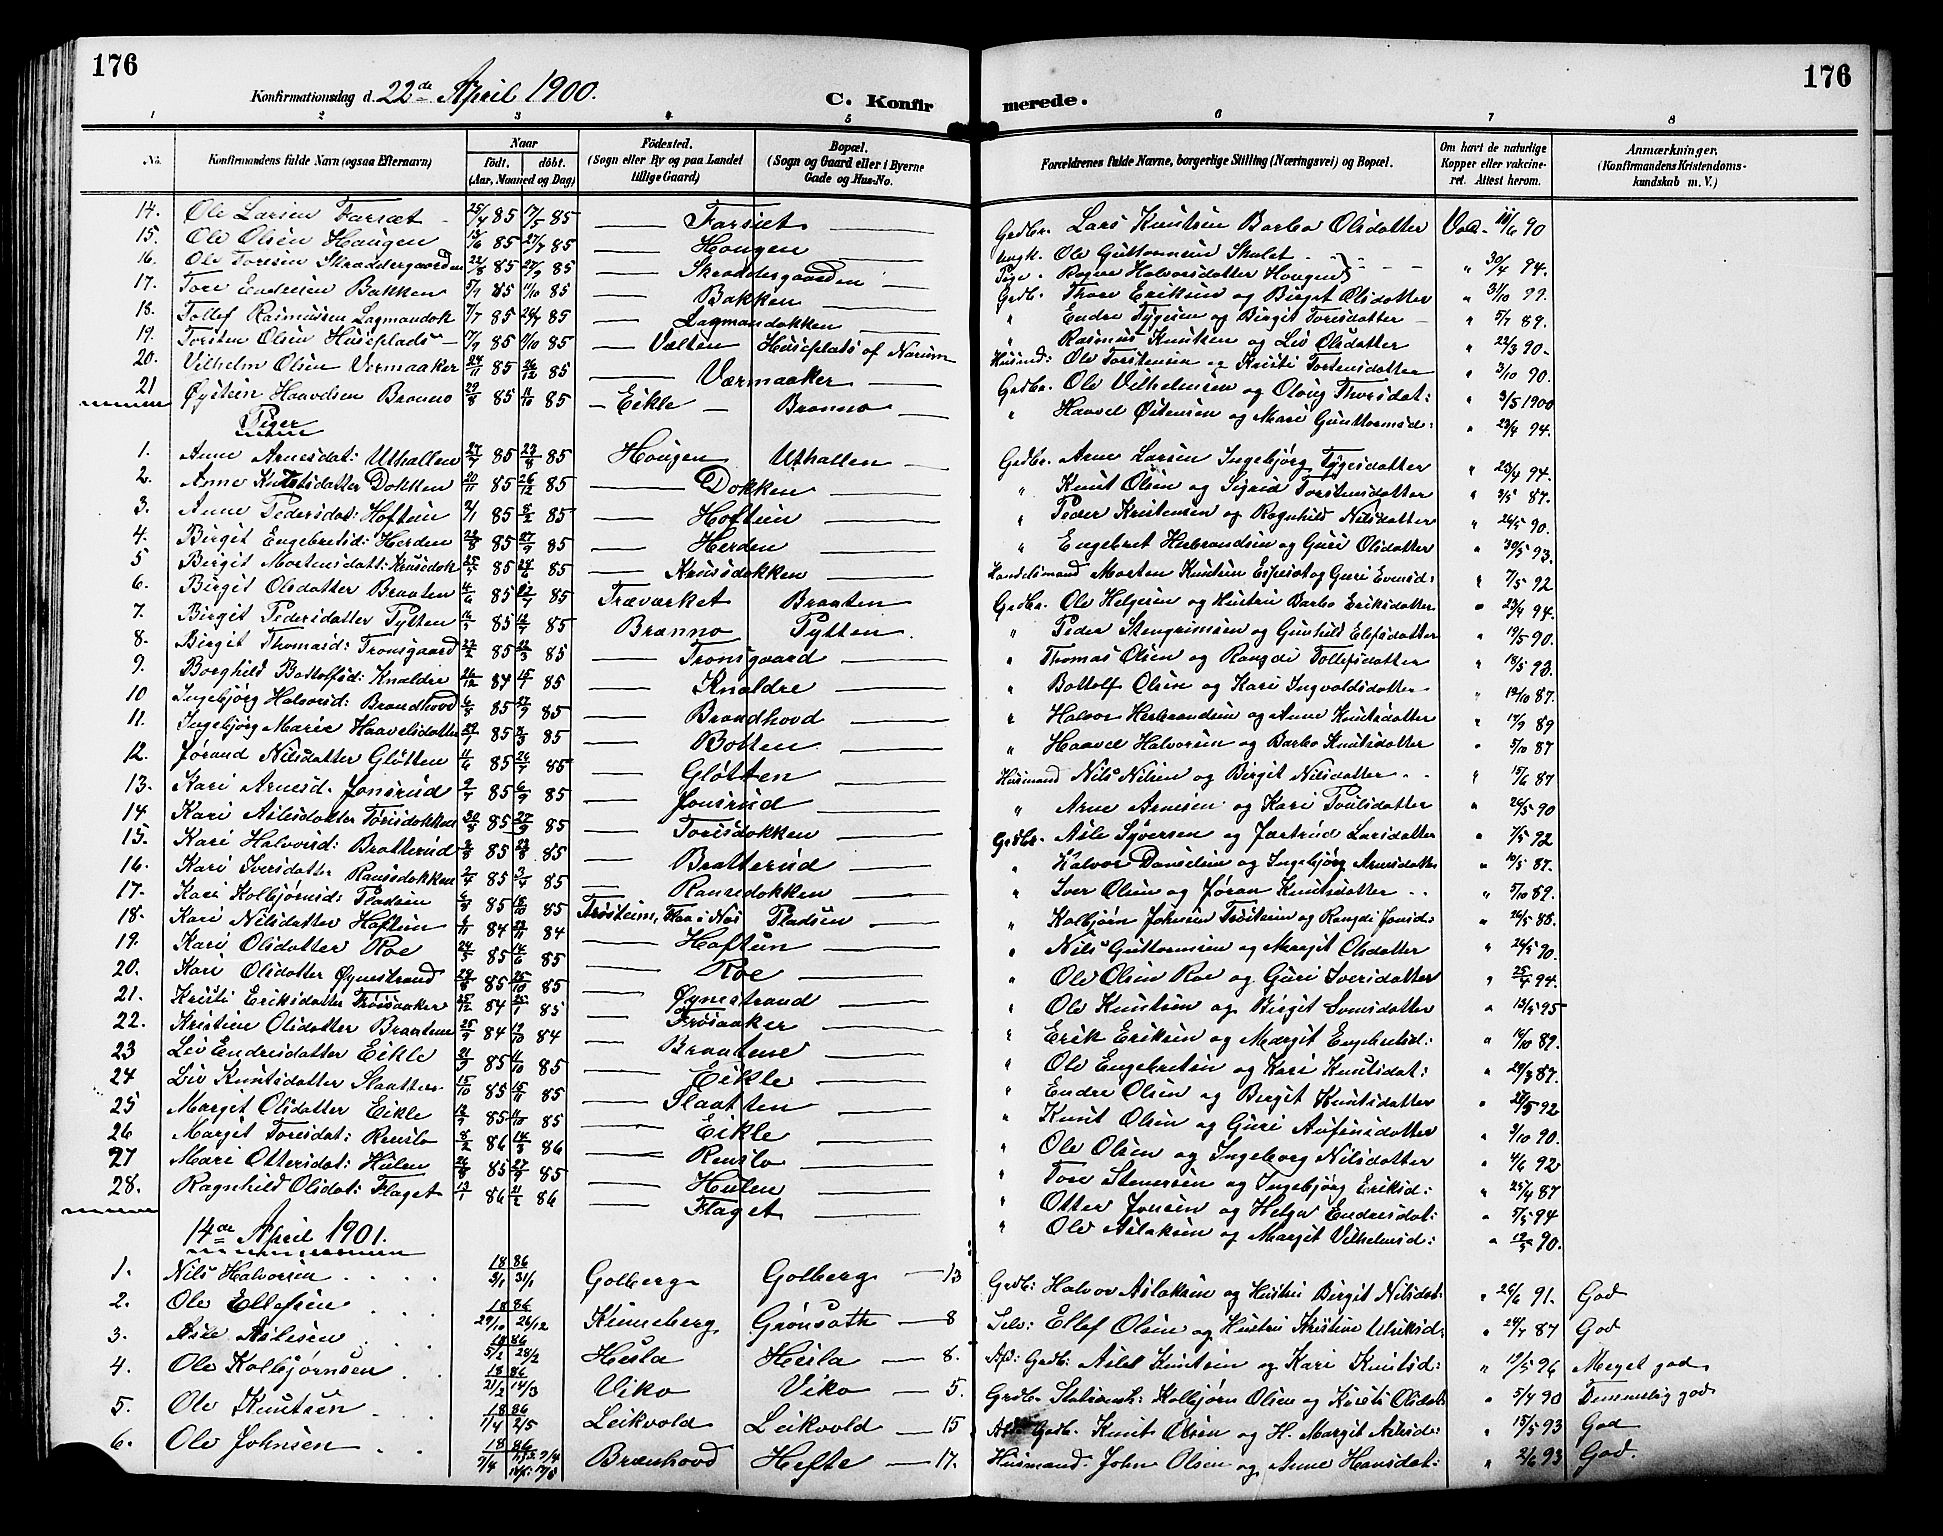 176
176
Konfirmationsdag d. 22de April 1900.
C. Konfirmerede.
1 2 3 4 5 6 7 8
No. Konfirmandens fulde Navn (ogsaa Efternavn) Naar født, døbt. (Aar, Maaned og Dag) Fødested. (Sogn eller By og paa Landet tillige Gaard) Bopæl. (Sogn og Gaard eller i Byerne Gade og Hus-No. Forældrenes fulde Navne, borgerlige Stilling (Næringsvei) og Bopæl. Om havt de naturlige Kopper eller vakcineret. Attest herom. Anmærkninger, (Konfirmandens Kristendomskundskab m. V.)
14. Ole Larsen Farsæt 25/4 85 17/5 85 — Farsæt — Grdbr. Lars Knutsen Barbo Olsdatter Vac. 90
15. Ole Olsen Haugen 85 27/7 85 — Haugen — Ungk. Ole Guttormsen Skalet Pige. Ragne Halvorsdatter Haugen " 30/4 94.
16. Ole Toresen Skraddergaarden 22/8 85 27/9 85 — Skraddergaarden — Grdb. Thore Eriksen og Birget Olsdatter " 31/10 99.
17. Tore Endresen Bakken 5/7 85 11/10 85 — Bakken — " Endre Tygesen og Birgit Toresdatter " 5/7 89.
18. Tollef Rasmussen Lagmandok 7/7 85 85 — Lagmandokken — " Rasmus Knutsen og Liv Olsdatter " 22/3 90.
19. Torsten Olsen Huseplads 17/9 85 11/10 85 — Vælten Huseplads af Narum Husmd: Ole Torstensen og Kristi Torstensdatter " 3/10 90.
20. Vilhelm Olsen Vermaaker 24/11 85 26/12 85 — Værmaaker — Grdbr. Ole Vilhelmsen og Oloug Thorsdat: " 3/5 1900
21 Øystein Haavelsen Branno 29/8 85 11/10 85 — Eikle — Branno — " Haavel Østensen og Mari Guttormsd: " 23/4 94.
Piger
1. Anne Arnesdat: Uthallen 27/7 85 23/8 85 Haugen Uthallen — Grdbr. Arne Larsen Ingebjørg Tygesdatter " 23/4 94.
2. Anne Knutsdatter Dokken 20/11 85 26/12 85 — Dokken — " Knut Olsen og Sigrid Torstensdatter " 3/5 87.
3. Anne Pedersdat: Hoftun 2/1 85 8/2 85 — Hoftun — " Peder Kristensen og Ragnhild Nilsdatter " 26/5 90.
4. Birgit Engebretsd: Herden 23/8 85 27/9 85 — Herden — " Engebret Herbrandsen og Guri Olsdatter " 30/5 93.
5 Birgit Mortensdatt: Krusedok 25/5 85 24/6 85 — Krusedokken — Handelsmand Morten Knutsen Espesæt og Guri Evensd: " 7/5 92
6. Birgit Olsdatter Braaten 4/6 85 85 Træværket Braaten Grdbr. Ole Helgesen og Hustru Barbo Eriksdatter " 23/4 94.
7. Birgit Pedersdatter Pytten 85 85 Branno Pytten. " Peder Stengrimsen og Gunhild Elefsdatter " 19/5 90.
8. Birgit Thomasd: Tronsgaard 22/2 85 22/3 85 — Tronsgaard — " Thomas Olsen og Rangdi Tollefsdatter " 18/5 93.
9. Borghild Bottolfsd: Knaldre 26/12 84 85 — Knaldre — " Bottolf Olsen og Kari Ingvaldsdatter " 12/10 87.
10 Ingebjørg Halvorsd: Brandhovd 85 27/9 85 — Brandhovd — " Halvor Herbrandsen og Anne Knutsdatter " 89
11. Ingebjørg Marie Haavelsdatter 85 85 — Botten — " Haavel Halvorsen og Barbo Knutsdatter " 5/10 87
12. Jørand Nilsdatter Gløtten 11/6 85 26/7 85 — Gløtten — Husmand Nils Nilsen og Birgit Nilsdatter " 15/6 87
13. Kari Arnesd. Jonsrud 85 6/9 85 — Jonsrud — " Arne Arnesen og Kari Poulsdatter " 26/5 90
14 Kari Aslesdatter Torisdokken 30/8 85 27/9 85 — Torisdokken — Grdbr. Asle Syversen og Jartrud Larsdatter " 7/5 92
15. Kari Halvorsd: Bratterud 85 23/8 85 — Bratterud — " Halvor Danielsen og Ingebjørg Arnesdatter " 10/5 87.
16. Kari Iversdatter Ransedokken 2/4 85 3/4 85 — Ransedokken — " Iver Olsen og Jøran Knutsdatter " 5/10 89.
17. Kari Kolbjørnsd: Pladsen 85 18/10 85 Trøsteim, Flaa i Nes Pladsen — " Kolbjørn Johnsen Trøsteim og Rangdi Jonsd: " 26/5 88.
18. Kari Nilsdatter Hoftun 84 84 — Hoftun — " Nils Guttormsen og Margit Olsdatter " 26/5 90.
19. Kari Olsdatter Roe 24/5 85 14/6 85 — Roe — " Ole Olsen Roe og Guri Iversdatter " 25/4 94.
20. Kari Olsdatter Øynestrand 85 25/10 85 — Øynestrand — " Ole Knutsen og Birgit Svensdatter " 13/5 95
21. Kristi Eriksdatter Frøisaaker 25/12 84 25/1 85 — Frøisaaker — " Erik Eriksen og Margit Engebretsd: " 16/10 89.
22. Kristine Olsdatter Braatene 25/9 84 19/10 84 — Braatene — " Ole Engebretsen og Kari Knutsdat: " 29/3 87.
23 Liv Endresdatter Eikle 85 11/10 85 — Eikle — " Endre Olsen og Birgit Knutsdatter " 92
24 Liv Knutsdatter Slaatten 15/10 85 15/11 85 — Slaatten — " Knut Olsen og Guri Arfinsdatter " 3/10 90.
25 Margit Olsdatter Eikle 85 11/10 85 — Eikle — " Ole Olsen og Ingeborg Nilsdatter " 4/6 92
26 Margit Toresdat: Renslo 8/2 86 14/3 86 — Renslo — " Tore Stenersen og Ingebjørg Eriksd: " 25/4 87
27 Mari Ottersdat: Hulen 26/8 85 27/9 85 — Hulen — " Otter Jonsen og Helga Endresdat: " 5/5 94
28. Ragnhild Olsdat: Flaget 13/1 86 21/2 86 — Flaget — " Ole Aslaksen og Margit Vilhelmsd: " 12/5 90.
14de April 1901.
1. Nils Halvorsen 1886 3/1 31/1 Golberg Golberg — 13 Grdb: Halvor Aslaksen og Hustru Birgit Nilsdat: " 26/6 91. God
2. Ole Ellefsen 1886 29/10 26/12 Kinneberg Grønsath — 8 Selv: Ellef Olsen og Hustru Kristine Ulriksd: " 24/7 87 God
3. Asle Aslesen 1886 5/1 28/2 Hesla Hesla — 8. Afd: Grdb: Asle Knutsen og Kari Knutsd: " 19/5 96 Meget god
4. Ole Kolbjørnsen 1886 21/2 14/3 Viko Viko — 5. Grdbr. Stationsh: Kolbjørn Olsen og Kirsti Olsdat " 5/4 90 Temmelig god
5. Ole Knutsen 1886 1/4 2/5 Leikvold Leikvold — 15 Afd: Grdb. Knut Olsen og H. Margit Aslesd: " 15/5 93 God
6. Ole Johnsen 1886 7/4 Brænhovd Hefte — 17. Husmand John Olsen og Anne Hansdat: " 2/6 93 God.